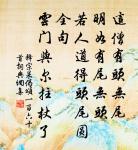 這僧有頭無尾
明如有尾無頭
若人道得頭尾圓
全句
雲門與尔拄杖了
釋宗杲偈頌一百六十
首詩典調集